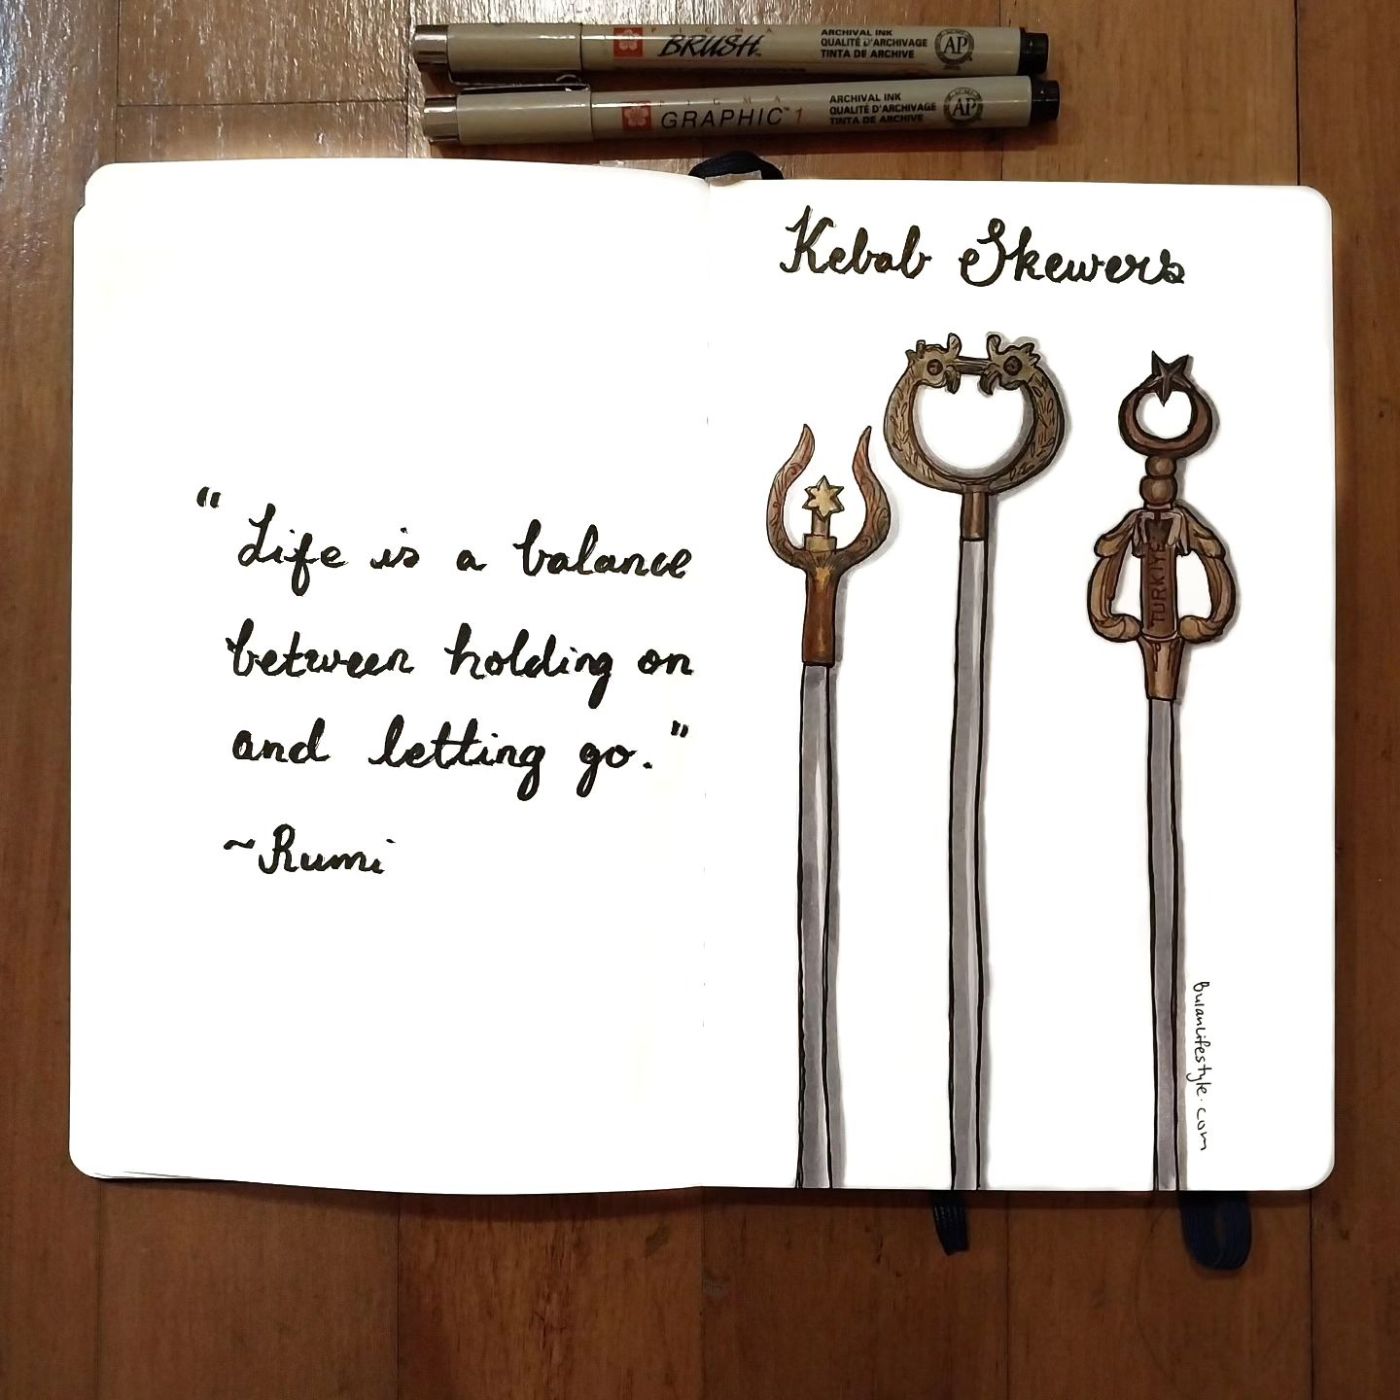 PIGMA
BRUSH™
ARCHIVAL INK
QUALITÉ D'ARCHIVAGE
TINTA DE ARCHIVE
AP
PIGMA
GRAPHIC™ 1
ARCHIVAL INK
QUALITÉ D'ARCHIVAGE
TINTA DE ARCHIVE
AP
"Life is a balance
between holding on
and letting go."
~Rumi
Kebab Skewers
TURKIYE
bulanlifestyle.com